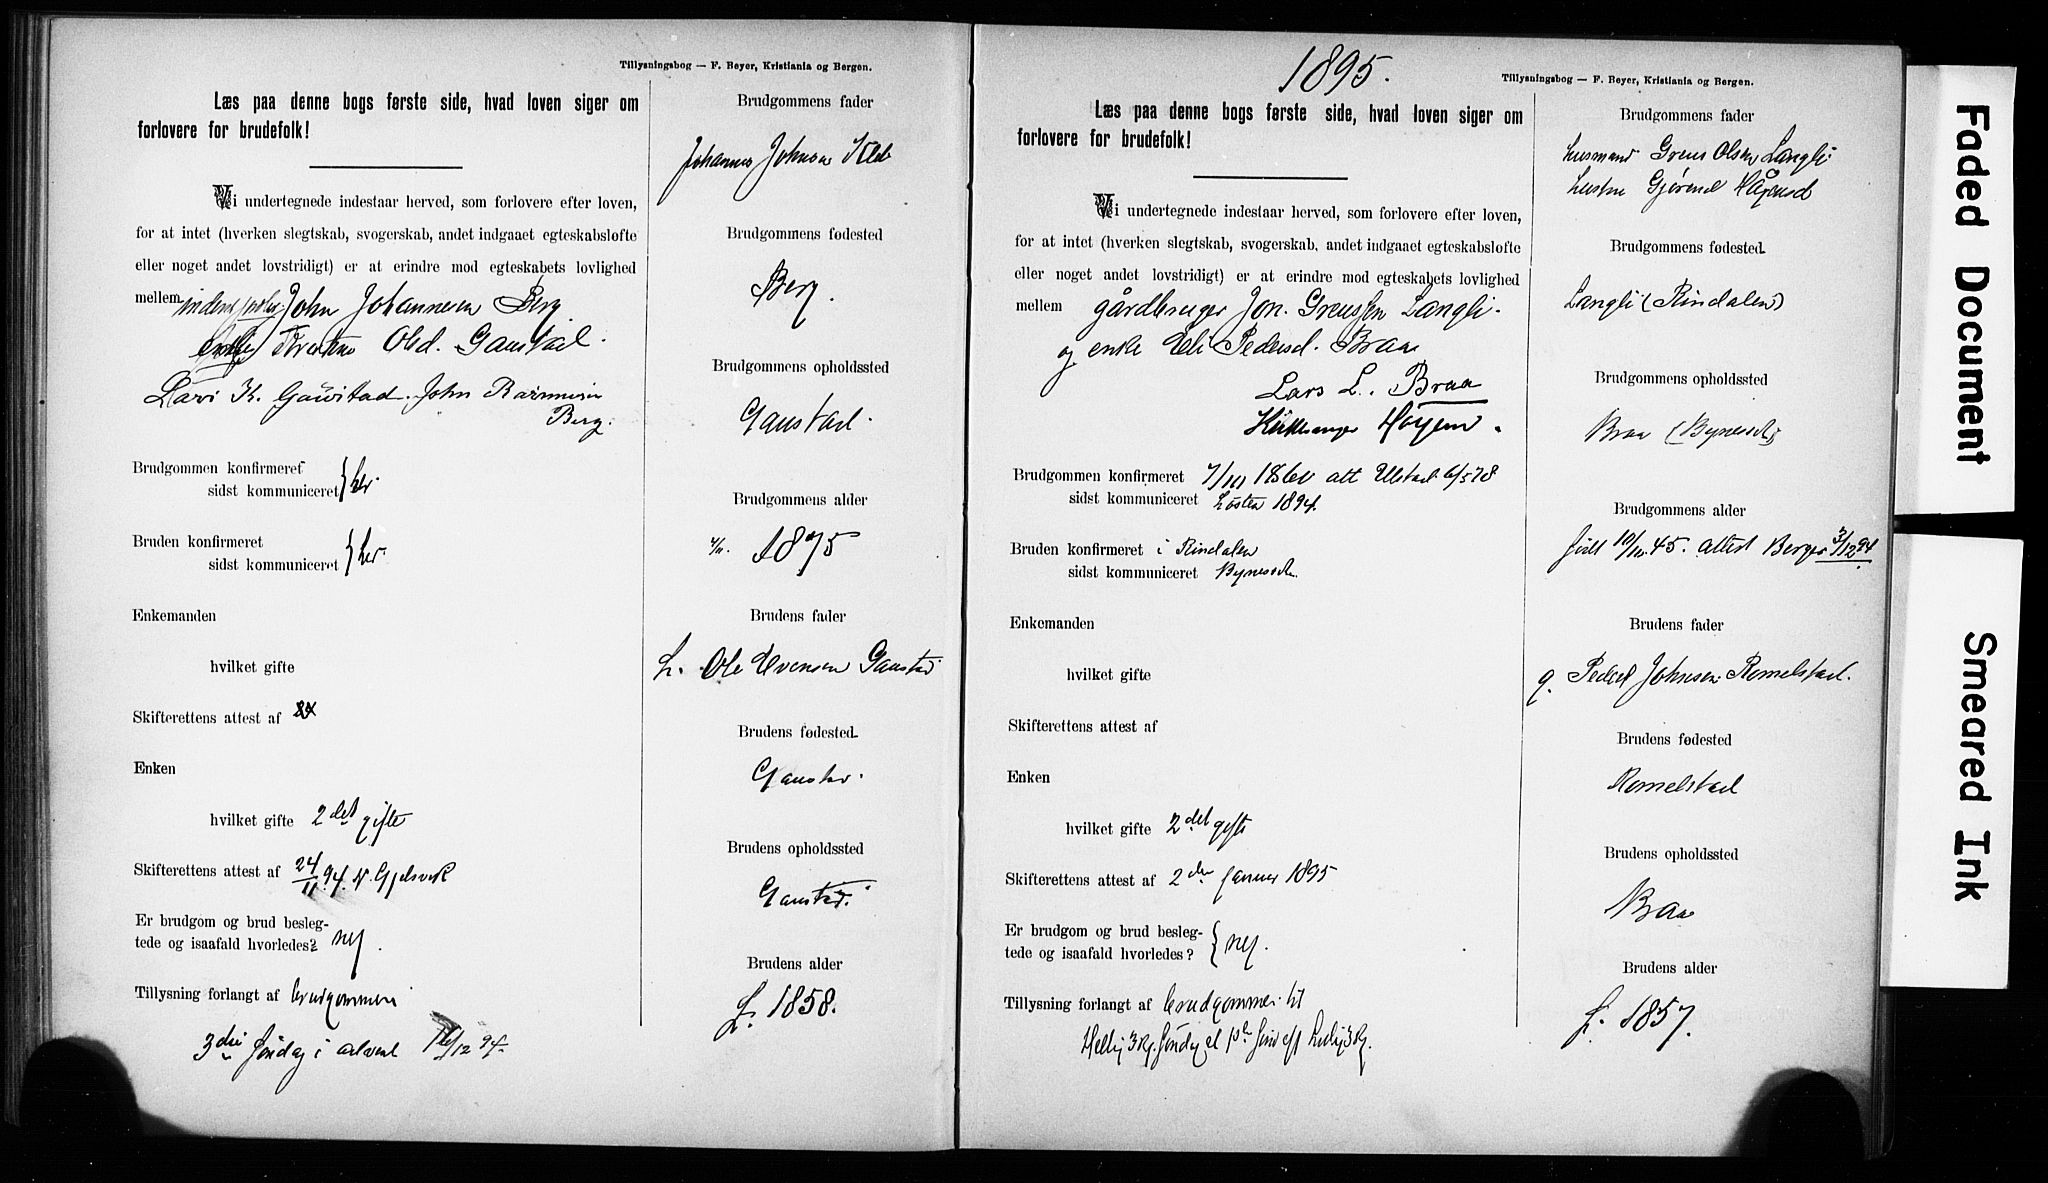 Tillysningsbog — F. Beyer, Kristiania og Bergen.
Læs paa denne bogs første side, hvad loven siger om
forlovere for brudefolk!
Vi undertegnede indestaar herved, som forlovere efter loven,
for at intet (hverken slegtskab, svogerskab, andet indgaaet egteskabsløfte
eller noget andet lovstridigt) er at erindre mod egteskabets lovlighed
mellem John Johannesen Berg
Old. Gaustad.
Lars K. Gaustad. John
Berg.
Brudgommen konfirmeret
sidst kommuniceret } her.
Bruden konfirmeret
sidst kommuniceret } her.
Enkemanden
hvilket gifte
Skifterettens attest af
Enken
hvilket gifte 2det gifte
Skifterettens attest af 24/11 94. N. Gjelsvik
Er brudgom og brud besleg-
tede og isaafald hvorledes? nej.
Tillysning forlangt af brudgommen
3die søndag i advent 16/12 94.
Brudgommens fader
Johannes Johnsen
Brudgommens fødested
Berg.
Brudgommens opholdssted
Gaustad.
Brudgommens alder
1875
Brudens fader
Ole Evensen Gaustad
Brudens fødested
Gaustad.
Brudens opholdssted
Gaustad.
Brudens alder
f. 1858.
1895.
Tillysningsbog — F. Beyer, Kristiania og Bergen.
Læs paa denne bogs første side, hvad loven siger om
forlovere for brudefolk!
Vi undertegnede indestaar herved, som forlovere efter loven,
for at intet (hverken slegtskab, svogerskab, andet indgaaet egteskabsløfte
eller noget andet lovstridigt) er at erindre mod egteskabets lovlighed
mellem gårdbruger Jon Langli.
og enke Eli Pedersd. Braa
Lars L. Braa
Høyem.
Brudgommen konfirmeret att
sidst kommuniceret høsten 1894.
Bruden konfirmeret i Rindalen
sidst kommuniceret
Enkemanden
hvilket gifte
Skifterettens attest af
Enken
hvilket gifte 2det gifte
Skifterettens attest af 2den januar 1895
Er brudgom og brud besleg-
tede og isaafald hvorledes? } nej.
Tillysning forlangt af brudgommen til
Brudgommens fader
husmand Olsen Langli
hustru
Brudgommens fødested
Langli (Rindalen)
Brudgommens opholdssted
Braa
Brudgommens alder
født 45. attest Berger 3/12 94
Brudens fader
g. Peder Johnsen Romelstad.
Brudens fødested
Romelstad
Brudens opholdssted
Braa
Brudens alder
f. 1857.
Faded Document
Smeared Ink